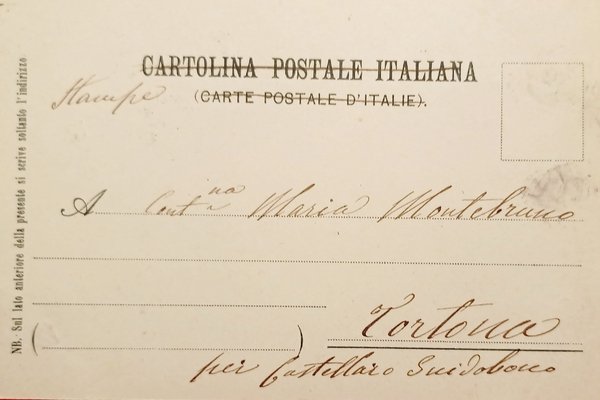 CARTOLINA POSTALE ITALIANA
(CARTE POSTALE D'ITALIE).
Stampe
NB. Sul lato anteriore della presente si scrive soltanto l'indirizzo
A Cont.na Maria Montebruno
Tortona
per Castellaro Guidobono